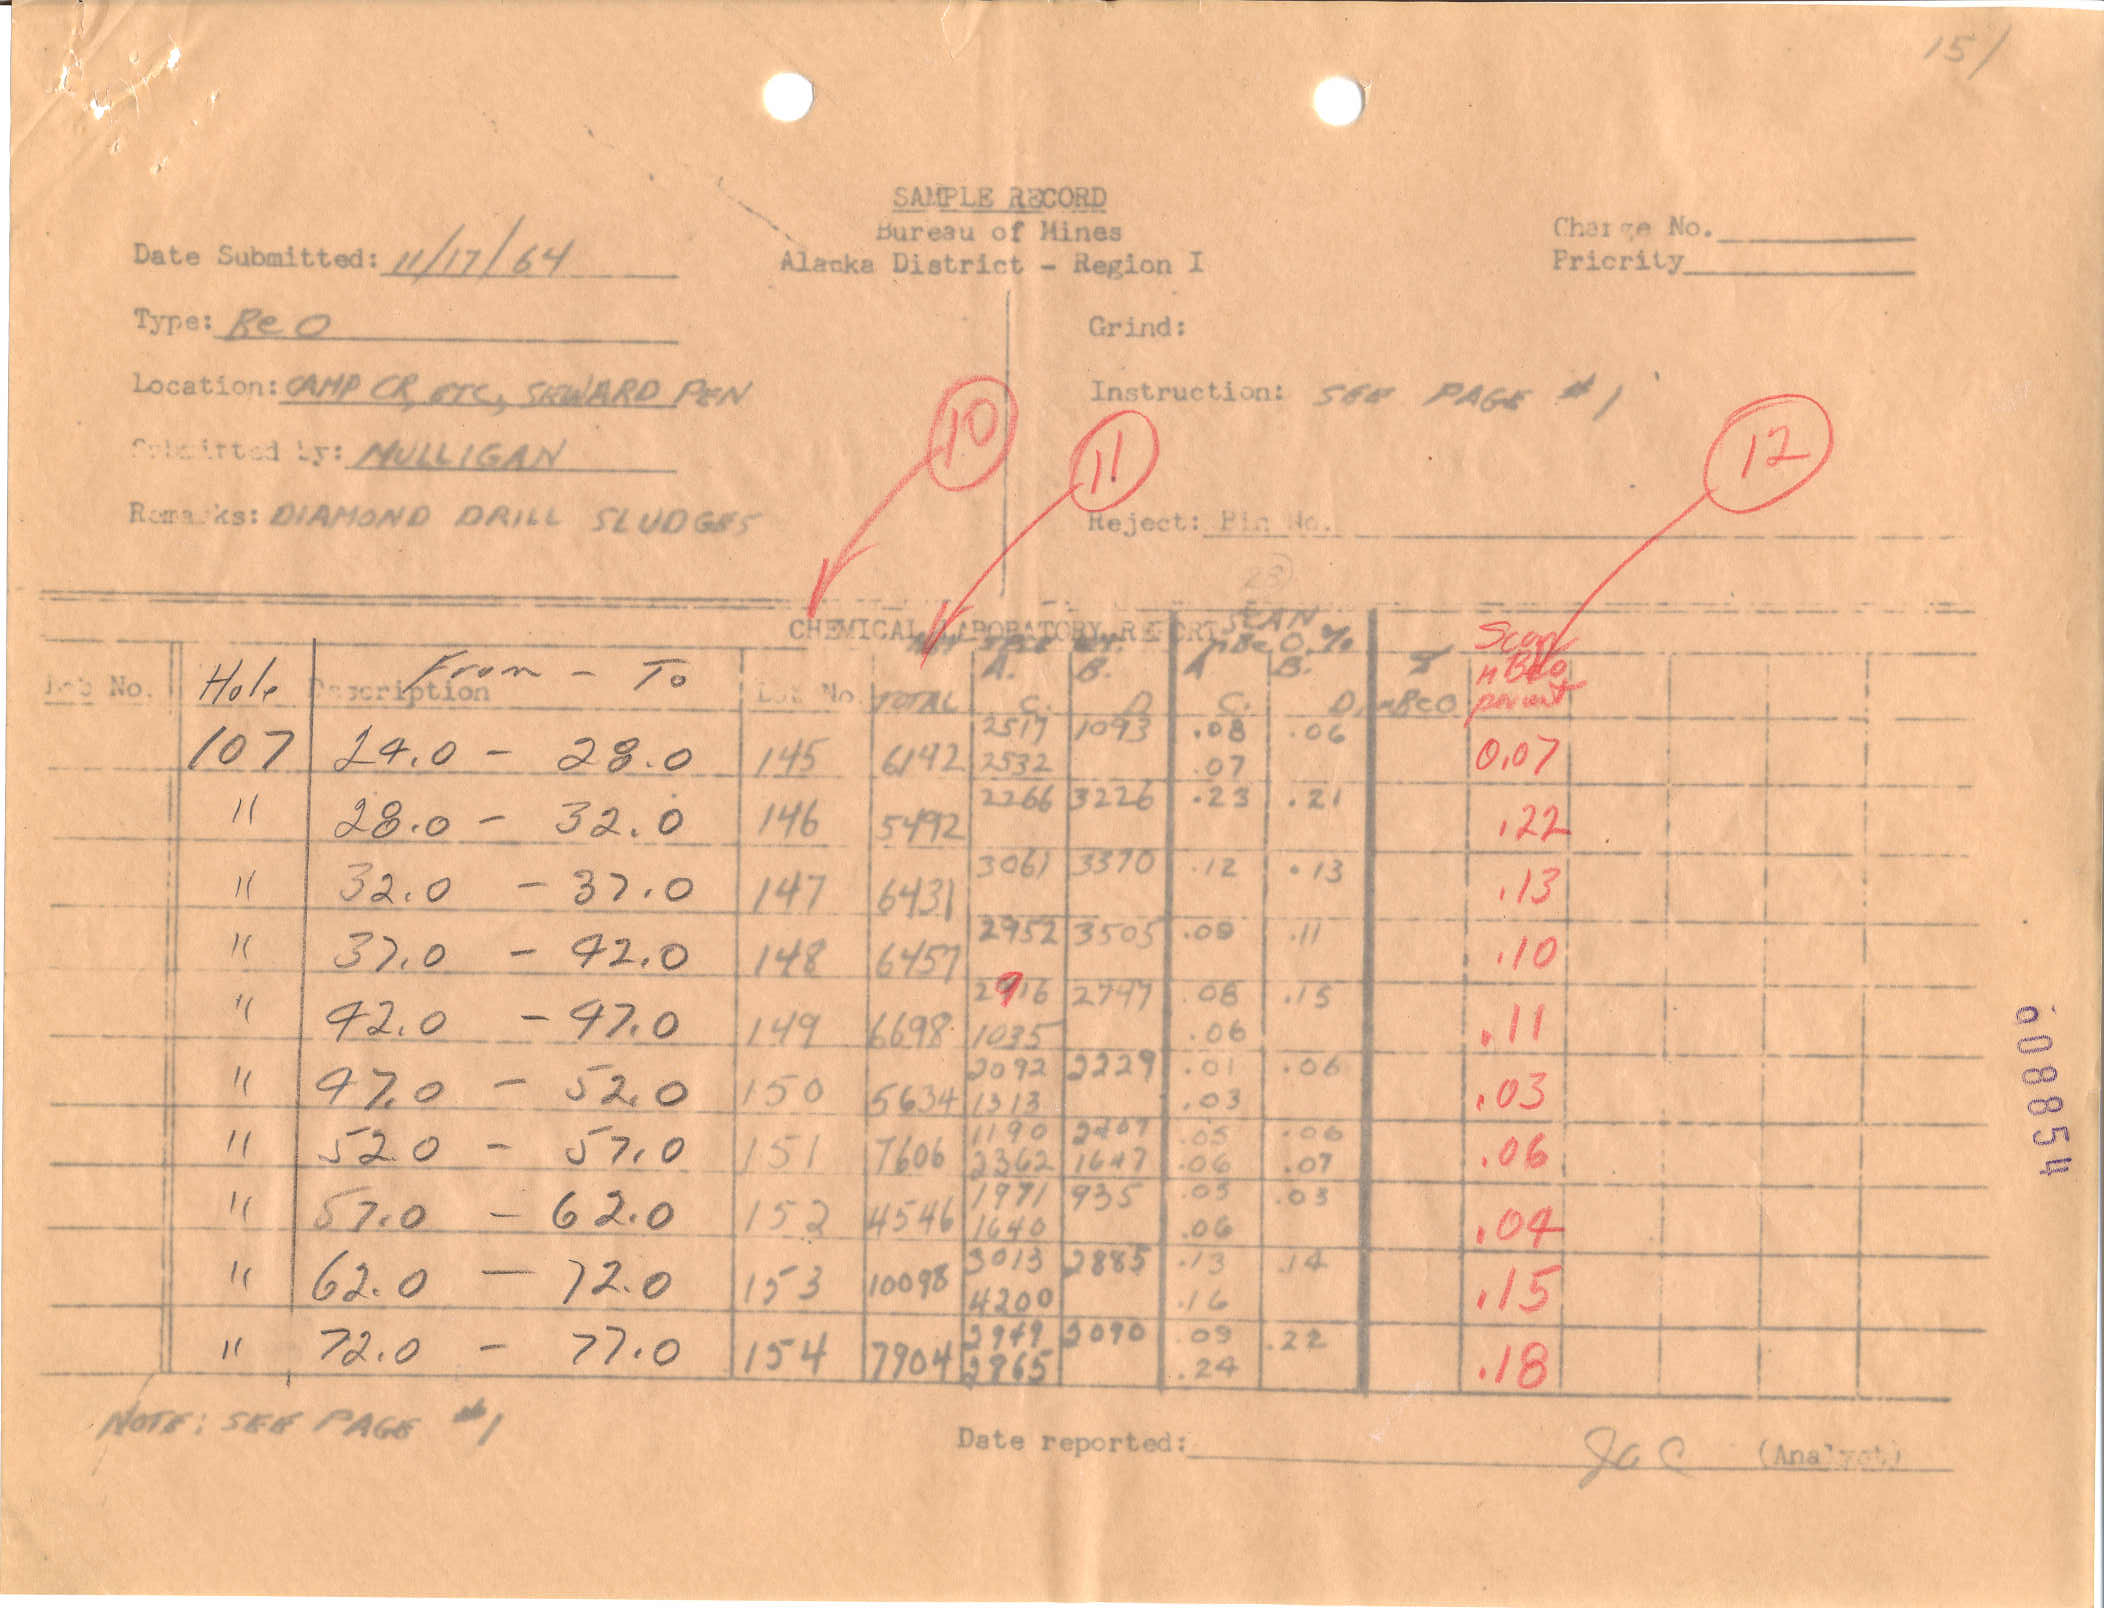 15/
SAMPLE RECORD
Bureau of Mines
Alaska District - Region I
Charge No.
Priority
Date Submitted: 11/17/64
Type: BeO
Location: CAMP CR, ETC, SEWARD PEN
Submitted by: MULLIGAN
Remarks: DIAMOND DRILL SLUDGES
Grind:
Instruction: SEE PAGE #1
Reject: Bin No.
10
11
12
23
CHEMICAL LABORATORY REPORT
SCAN
nBeO %
A. B. A B.
Lab No. Hole Description From - To Lot No. TOTAL C. D C. D. nBeO Scan nBeO percent
107 24.0 - 28.0 145 6142 2517 1093 .08 .06 0.07
2532 .07
" 28.0 - 32.0 146 5492 2266 3226 .23 .21 .22
" 32.0 - 37.0 147 6431 3061 3370 .12 .13 .13
" 37.0 - 42.0 148 6457 2952 3505 .09 .11 .10
" 42.0 - 47.0 149 6698 2916 2747 .08 .15 .11
1035 .06
" 47.0 - 52.0 150 5634 2092 2229 .01 .06 .03
1313 .03
" 52.0 - 57.0 151 7606 1190 2407 .05 .06 .06
2362 1647 .06 .07
" 57.0 - 62.0 152 4546 1971 935 .03 .03 .04
1640 .06
" 62.0 - 72.0 153 10098 3013 2885 .13 .14 .15
4200 .16
" 72.0 - 77.0 154 7904 2949 2090 .09 .22 .18
2865 .24
NOTE: SEE PAGE #1
Date reported: (Analyst)
008854